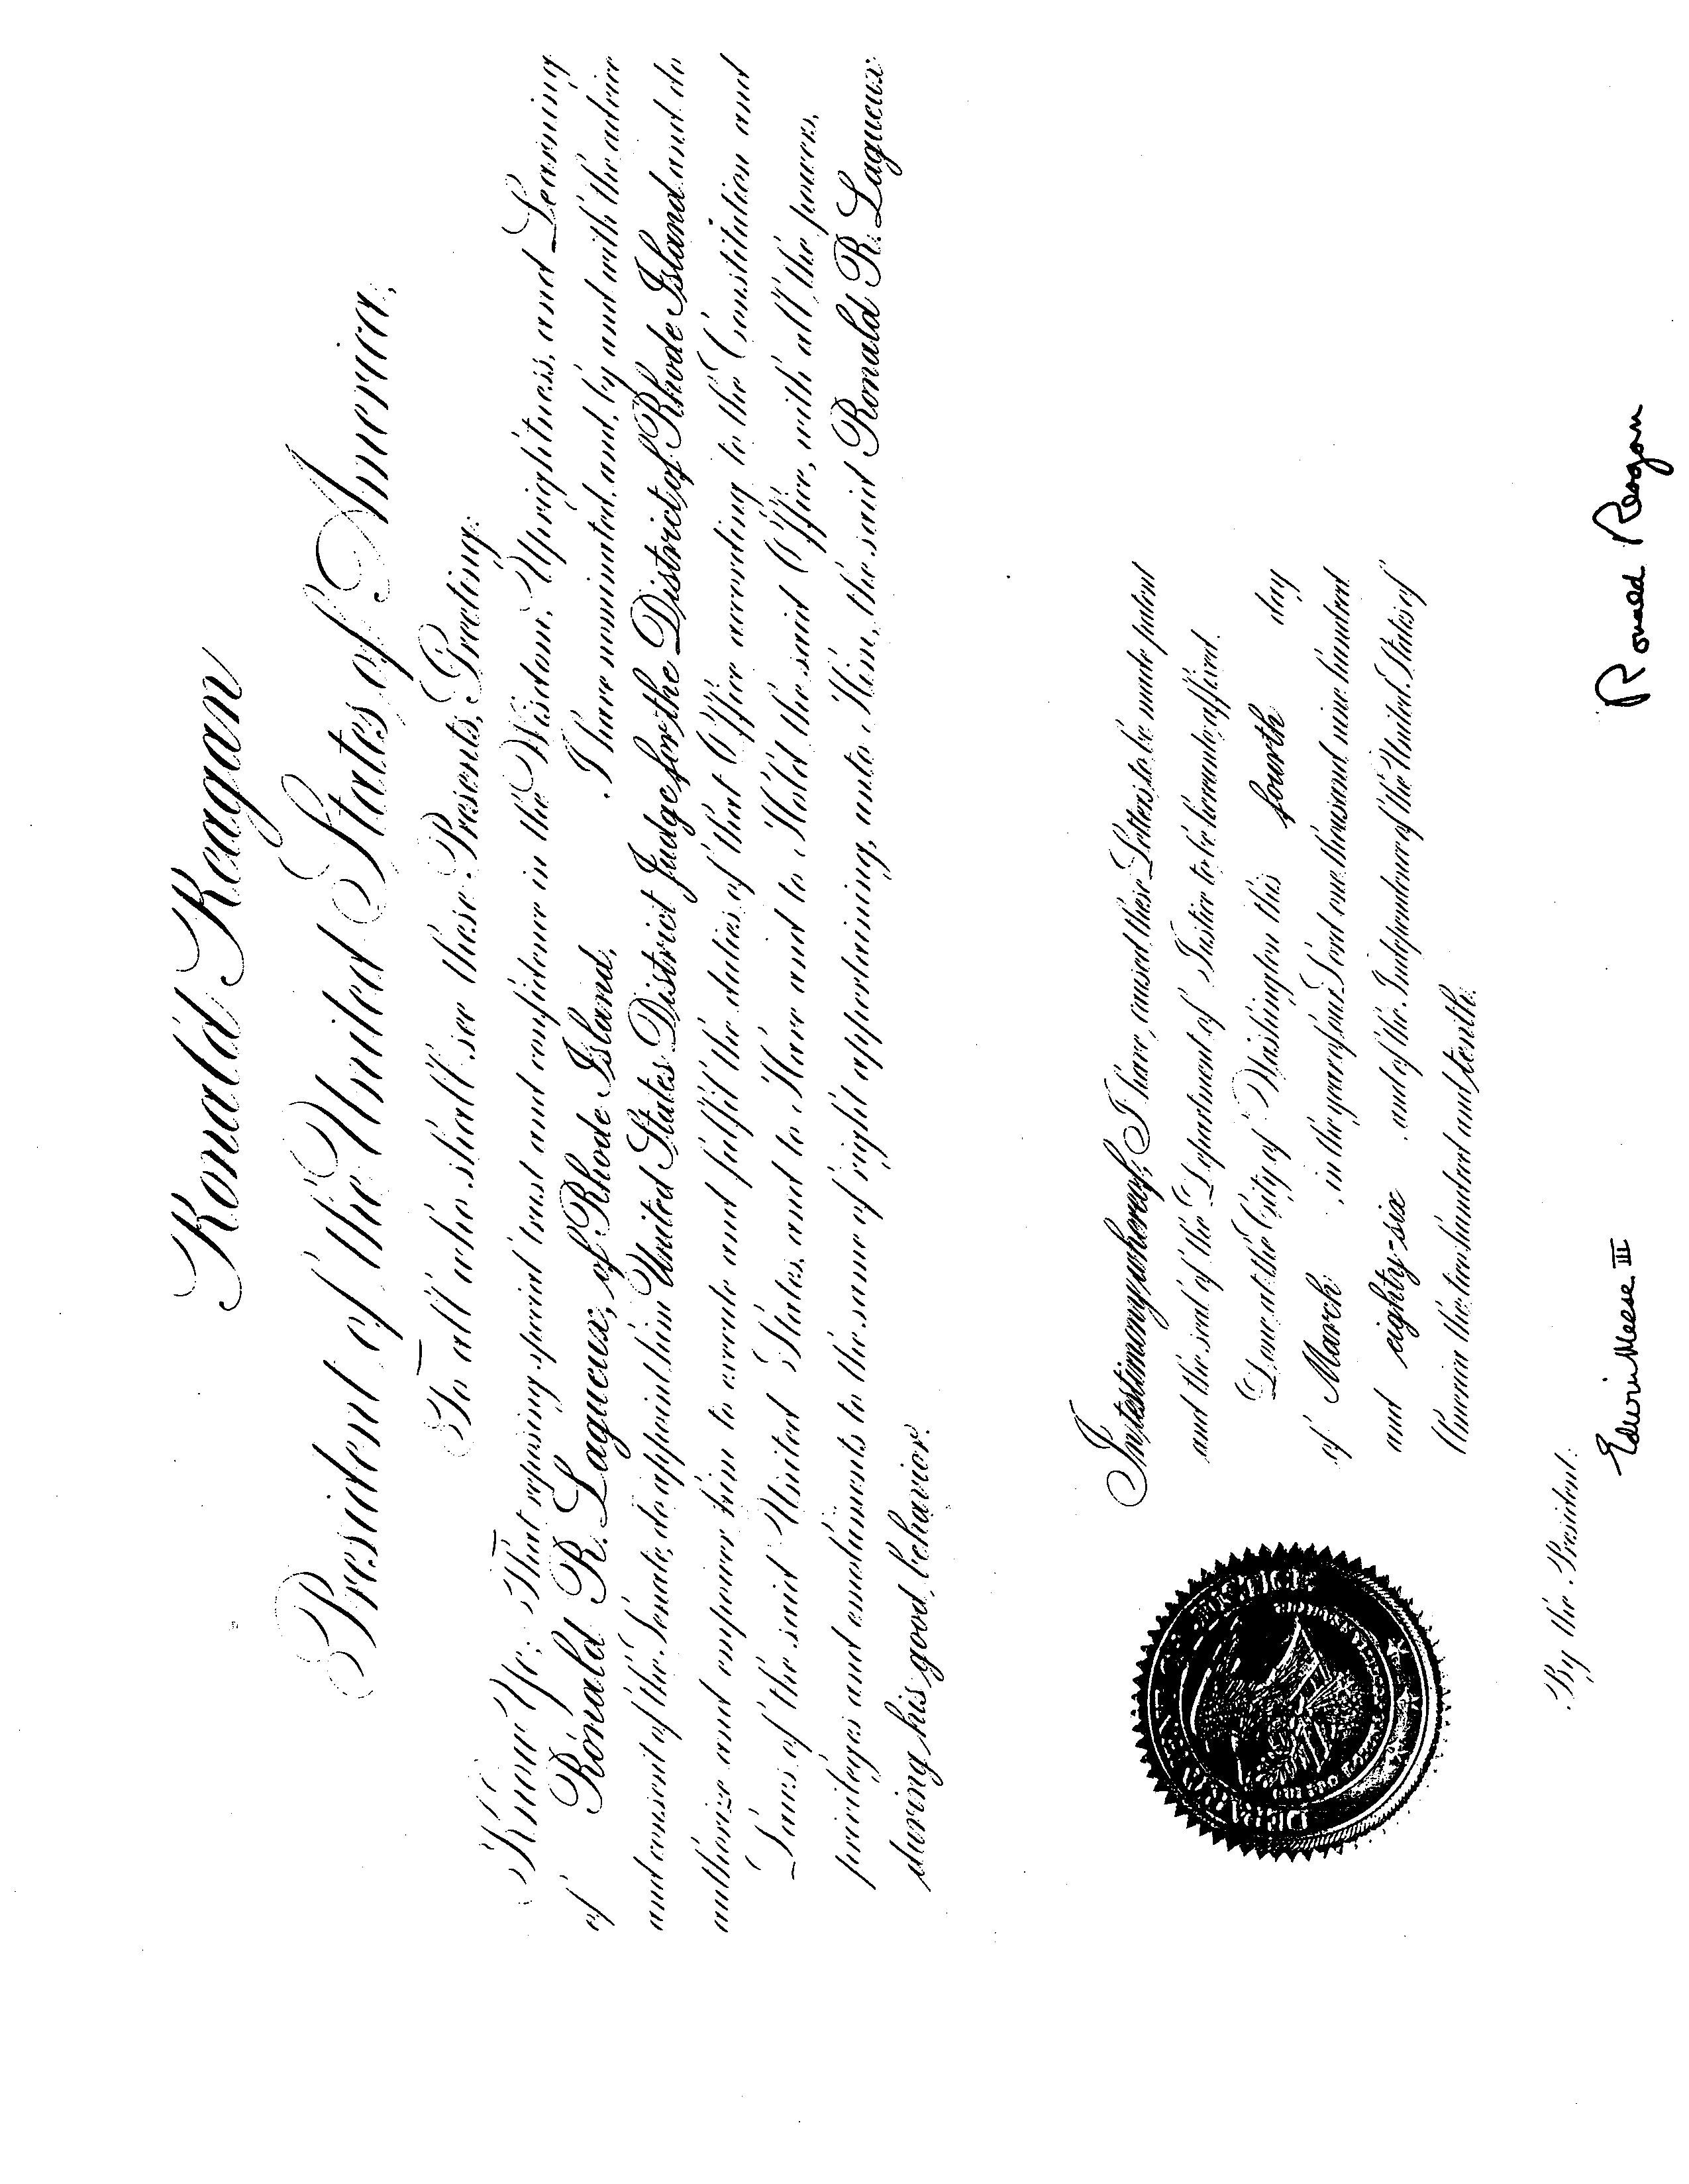 Ronald Reagan
President of the United States of America,
To all who shall see these Presents, Greeting:
Know Ye: That reposing special trust and confidence in the Wisdom, Uprightness, and Learning
of Ronald R. Lagueux, of Rhode Island, I have nominated, and, by and with the advice
and consent of the Senate, do appoint him United States District Judge for the District of Rhode Island and do
authorize and empower him to execute and fulfil the duties of that Office according to the Constitution and
Laws of the said United States, and to Have and to Hold the said Office, with all the powers,
privileges and emoluments to the same of right appertaining, unto Him, the said Ronald R. Lagueux
during his good behavior.
In testimony whereof, I have caused these Letters to be made patent
and the seal of the Department of Justice to be hereunto affixed.
Done at the City of Washington this fourth day
of March, in the year of our Lord one thousand nine hundred
and eighty-six, and of the Independence of the United States of
America the two hundred and tenth.
By the President:
Ronald Reagan
Edwin Meese III